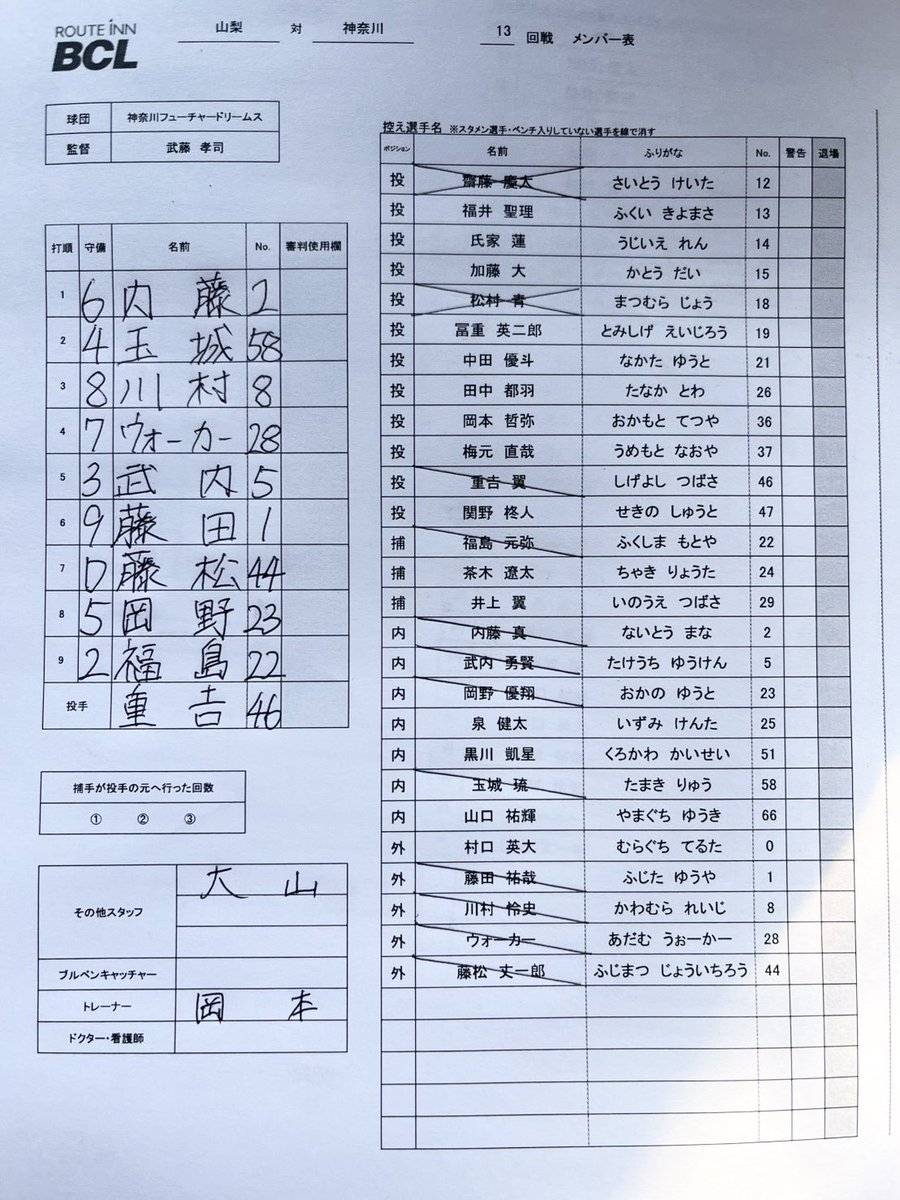 ROUTE INN
BCL
山梨 対 神奈川 13 回戦 メンバー表
球団 神奈川フューチャードリームス
監督 武藤 孝司
打順 守備 名前 No. 審判使用欄
1 6 内 藤 2
2 4 玉 城 58
3 8 川 村 8
4 7 ウォーカー 28
5 3 武 内 5
6 9 藤 田 1
7 D 藤 松 44
8 5 岡 野 23
9 2 福 島 22
投手 重 吉 46
捕手が投手の元へ行った回数
① ② ③
その他スタッフ 大 山
ブルペンキャッチャー
トレーナー 岡 本
ドクター・看護師
控え選手名 ※スタメン選手・ベンチ入りしていない選手を線で消す
ポジション 名前 ふりがな No. 警告 退場
投 齋藤 慶太 さいとう けいた 12
投 福井 聖理 ふくい きよまさ 13
投 氏家 蓮 うじいえ れん 14
投 加藤 大 かとう だい 15
投 松村 青 まつむら じょう 18
投 冨重 英二郎 とみしげ えいじろう 19
投 中田 優斗 なかた ゆうと 21
投 田中 都羽 たなか とわ 26
投 岡本 哲弥 おかもと てつや 36
投 梅元 直哉 うめもと なおや 37
投 重吉 翼 しげよし つばさ 46
投 関野 柊人 せきの しゅうと 47
捕 福島 元弥 ふくしま もとや 22
捕 茶木 遼太 ちゃき りょうた 24
捕 井上 翼 いのうえ つばさ 29
内 内藤 真 ないとう まな 2
内 武内 勇賢 たけうち ゆうけん 5
内 岡野 優翔 おかの ゆうと 23
内 泉 健太 いずみ けんた 25
内 黒川 凱星 くろかわ かいせい 51
内 玉城 琉 たまき りゅう 58
内 山口 祐輝 やまぐち ゆうき 66
外 村口 英大 むらぐち てるた 0
外 藤田 祐哉 ふじた ゆうや 1
外 川村 怜史 かわむら れいじ 8
外 ウォーカー あだむ うぉーかー 28
外 藤松 丈一郎 ふじまつ じょういちろう 44